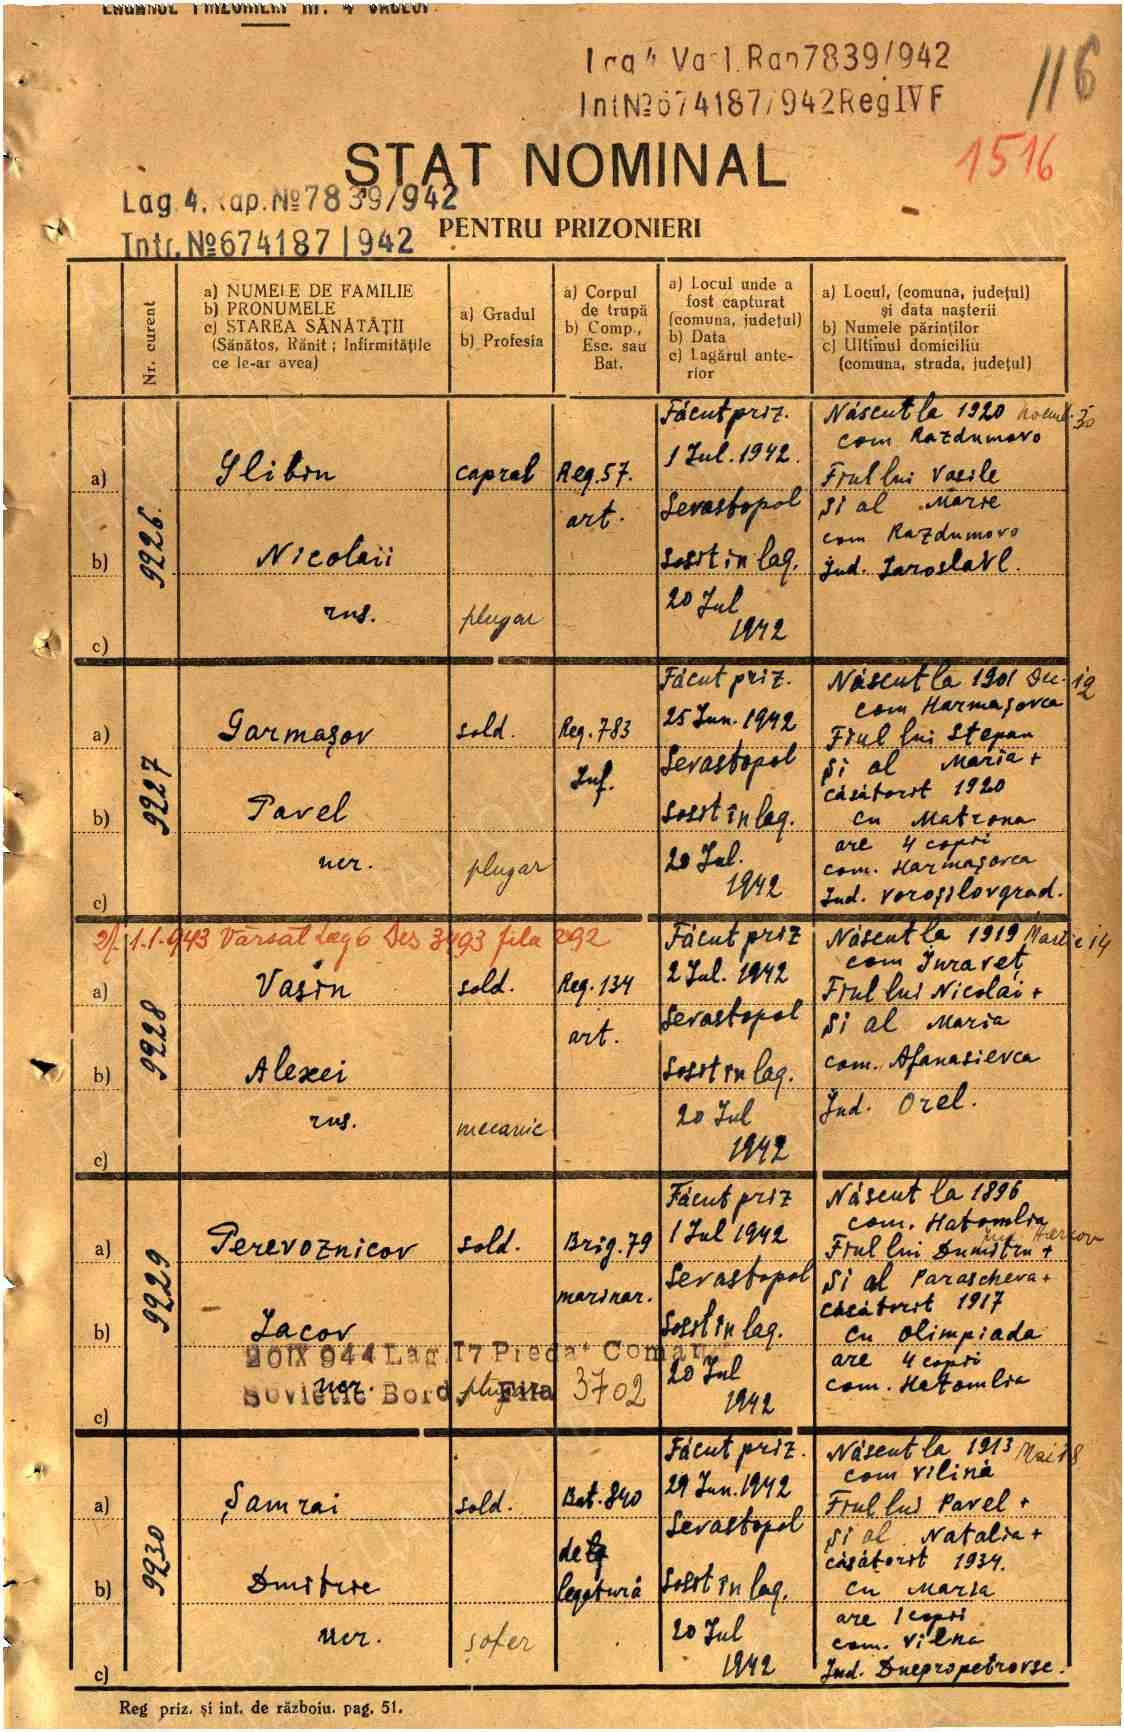 LAGĂRUL PRIZONIERI Nr. 4 VASLUI
Lag 4 Vasl. Rap 7839/942
Int № 674187/942 Reg IV F
116
1516
STAT NOMINAL
Lag 4. Rap. № 7839/942
Intr. № 674187 | 942
PENTRU PRIZONIERI
Nr. curent
a) NUMELE DE FAMILIE
b) PRONUMELE
c) STAREA SĂNĂTĂȚII
(Sănătos, Rănit ; Infirmitățile
ce le-ar avea)
a) Gradul
b) Profesia
a) Corpul
de trupă
b) Comp.,
Esc. sau
Bat.
a) Locul unde a
fost capturat
(comuna, județul)
b) Data
c) Lagărul ante-
rior
a) Locul, (comuna, județul)
și data nașterii
b) Numele părinților
c) Ultimul domiciliu
(comuna, strada, județul)
9226
a) Slibin
b) Nicolaii
c) rus.
caporal
plugar
Reg. 57.
art.
Făcut priz.
1 Iul. 1942.
Sevastopol
Sosit în lag.
20 Iul
1942
Născut la 1920
30
com Razdumovo
Fiul lui Vasile
și al Marie
com Razdumovo
Jud. Iaroslavl.
9227
a) Garmașov
b) Pavel
c) ucr.
sold.
plugar
Reg. 783
Inf.
Făcut priz.
25 Iun. 1942
Sevastopol
Sosit în lag.
20 Iul.
1942
Născut la 1901 Dec. 12
com Harmașovca
Fiul lui Stepan
și al Maria +
căsătorit 1920
cu Matrona
are 4 copii
com. Harmașovca
Jud. Voroșilovgrad.
1.1.943 Vărsat Lag 6 Des 3493 fila 292
9228
a) Vasin
b) Alexei
c) rus.
sold.
mecanic
Reg. 134
art.
Făcut priz
2 Iul. 1942
Sevastopol
Sosit în lag.
20 Iul
1942
Născut la 1919 Martie 14
com Juraveț
Fiul lui Nicolai +
și al Maria
com. Afanasievca
Jud. Orel.
9229
a) Perevoznicov
b) Iacov
c) ucr.
sold.
plugar
Brig. 79
marinar.
Făcut priz
1 Iul 1942
Sevastopol
Sosit în lag.
20 Iul
1942
Născut la 1896
com. Hatomlia
jud. Harcov
Fiul lui Dumitru +
și al Parascheva +
căsătorit 1917
cu Olimpiada
are 4 copii
com. Hatomlia
20 IX 944 Lag. 17 Predat Comand
Sovietic Bord. Fila 3702
9230
a) Șamrai
b) Dmitrie
c) ucr.
sold.
șofer
Bat. 840
de
legătură
Făcut priz.
29 Iun. 1942
Sevastopol
Sosit în lag.
20 Iul
1942
Născut la 1913 Mai 18
com Vilina
Fiul lui Pavel +
și al Natalia +
căsătorit 1934.
cu Maria
are 1 copii
com. Vilna
Jud. Dnepropetrovsc.
Reg priz. și int. de războiu. pag. 51.